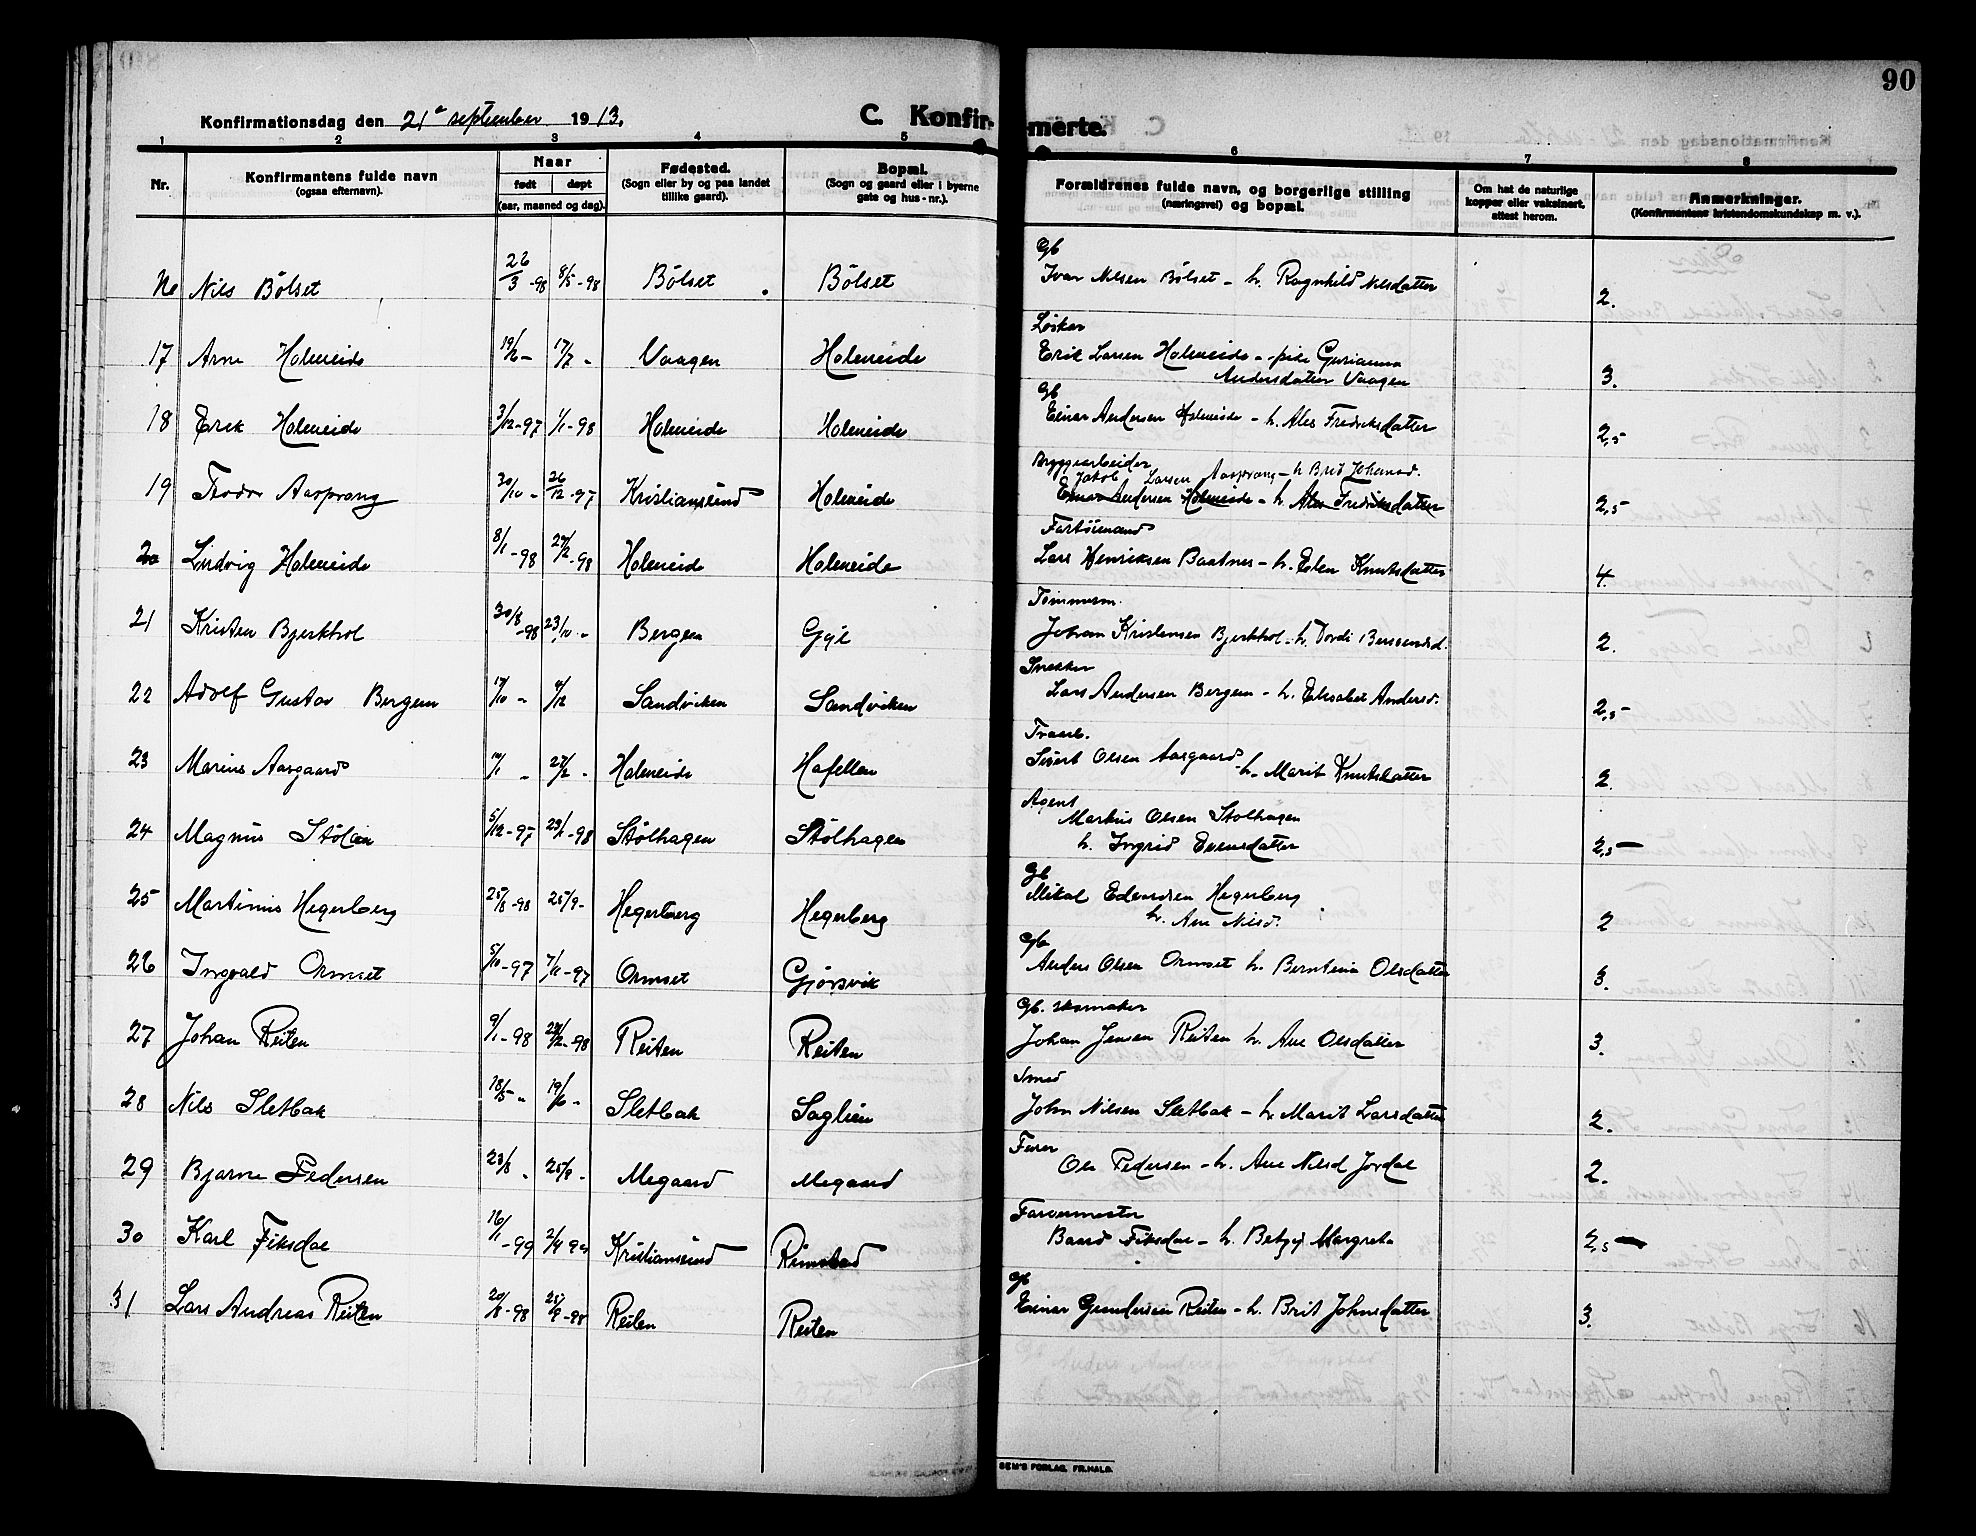 90
Konfirmationsdag den 21de september 1913.
C. Konfirmerte.
1 2 3 4 5 6 7 8
Nr.
Konfirmantens fulde navn
(ogsaa efternavn).
Naar
født døpt
(aar, maaned og dag).
Fødested.
(Sogn eller by og paa landet
tillike gaard).
Bopæl.
(Sogn og gaard eller i byerne
gate og hus-nr.).
Forældrenes fulde navn, og borgerlige stilling
(næringsvei) og bopæl.
Om hat de naturlige
kopper eller vaksinert,
attest herom.
Anmerkninger.
(Konfirmantens kristendomskundskap m. v.).
Gb
16 Nils Bölset 26/3-98 8/5-98 Bölset Bölset Ivar Nilsen Bölset - h. Ragnhild Nilsdatter 2.
Löskar
17 Arne Holmeide Vaagen Holmeide Erik Larsen Holmeide - pike Gurianna
Andersdatter Vaagen 3.
Gb
18 Erik Holmeide 3/12-97 1/1-98 Holmeide Holmeide Einar Andersen Holmeide - h. Ales Fredriksdatter 2,5
Bryggearbeider
Jakob Larsen Aasprang - h Brit Johansd.
19 Teodor Aasprang 30/10 - 26/12-97 Kristiansund Holmeide Einar Andersen Holmeide - h. Ales Fredriksdatter 2,5
Fartöimand
20 Ludvig Holmeide 8/1-98 27/2-98 Holmeide Holmeide Lars Henriksen Baatnes - h. Elen Knutsdatter 4.
Tömmerm.
21 Kristen Bjerkhol 30/8-98 23/10 - Bergem Gyl Johan Kristensen Bjerkhol - h. Dordi 2.
Snekker
22 Adolf Gustav Bergem 17/10 - 4/12 Sandviken Sandviken Lars Andersen Bergem - h. Elisabet Andersd. 2,5
23 Marius Aargaard 27/2 - Holmeide Hafellen Sivert Olsen Aargaard h. Marit Knutsdatter 2.
Agent
Markus Olsen Stolhagen
24 Magnus Stölan 5/12-97 23/1-98 Stölhagen Stölhagen h. Ingrid Evensdatter 2,5
Gb
25 Martinus Hegerberg 25/8-98 25/9- Hegerberg Hegerberg Mikal Edvardsen Hegerberg
h. Ane Nilsd. 2
Gb
26 Ingvald Ormset 5/10-97 7/11-97 Ormset Gjörsvik Anders Olsen Ormset h. Berntina Olsdatter 3.
Gb. skomaker
27 Johan Reiten 9/1-98 Reiten Reiten Johan Jensen Reiten h. Ane Olsdatter 3.
Smed
28 Nils Sletbak 18/5 - 19/6 - Sletbak Saglien John Nilsen Sletbak - h. Marit Larsdatter 2.
29 Bjarne Pedersen 23/8 - 25/9 - Megaard Megaard Ole Pedersen - h. Ane Nilsd Jordal 2.
Farvermester
30 Karl Fiksdal 16/1-99 2/4 99 Kristiansund Rimstad Baard Fiksdal - h. Betzy Margrete 2,5
Gb
31 Lars Andreas Reiten 20/8-98 25/9-98 Reiten Reiten Einar Gundersen Reiten - h. Brit Johnsdatter 3.
SEM'S FORLAG, FR.HALD.